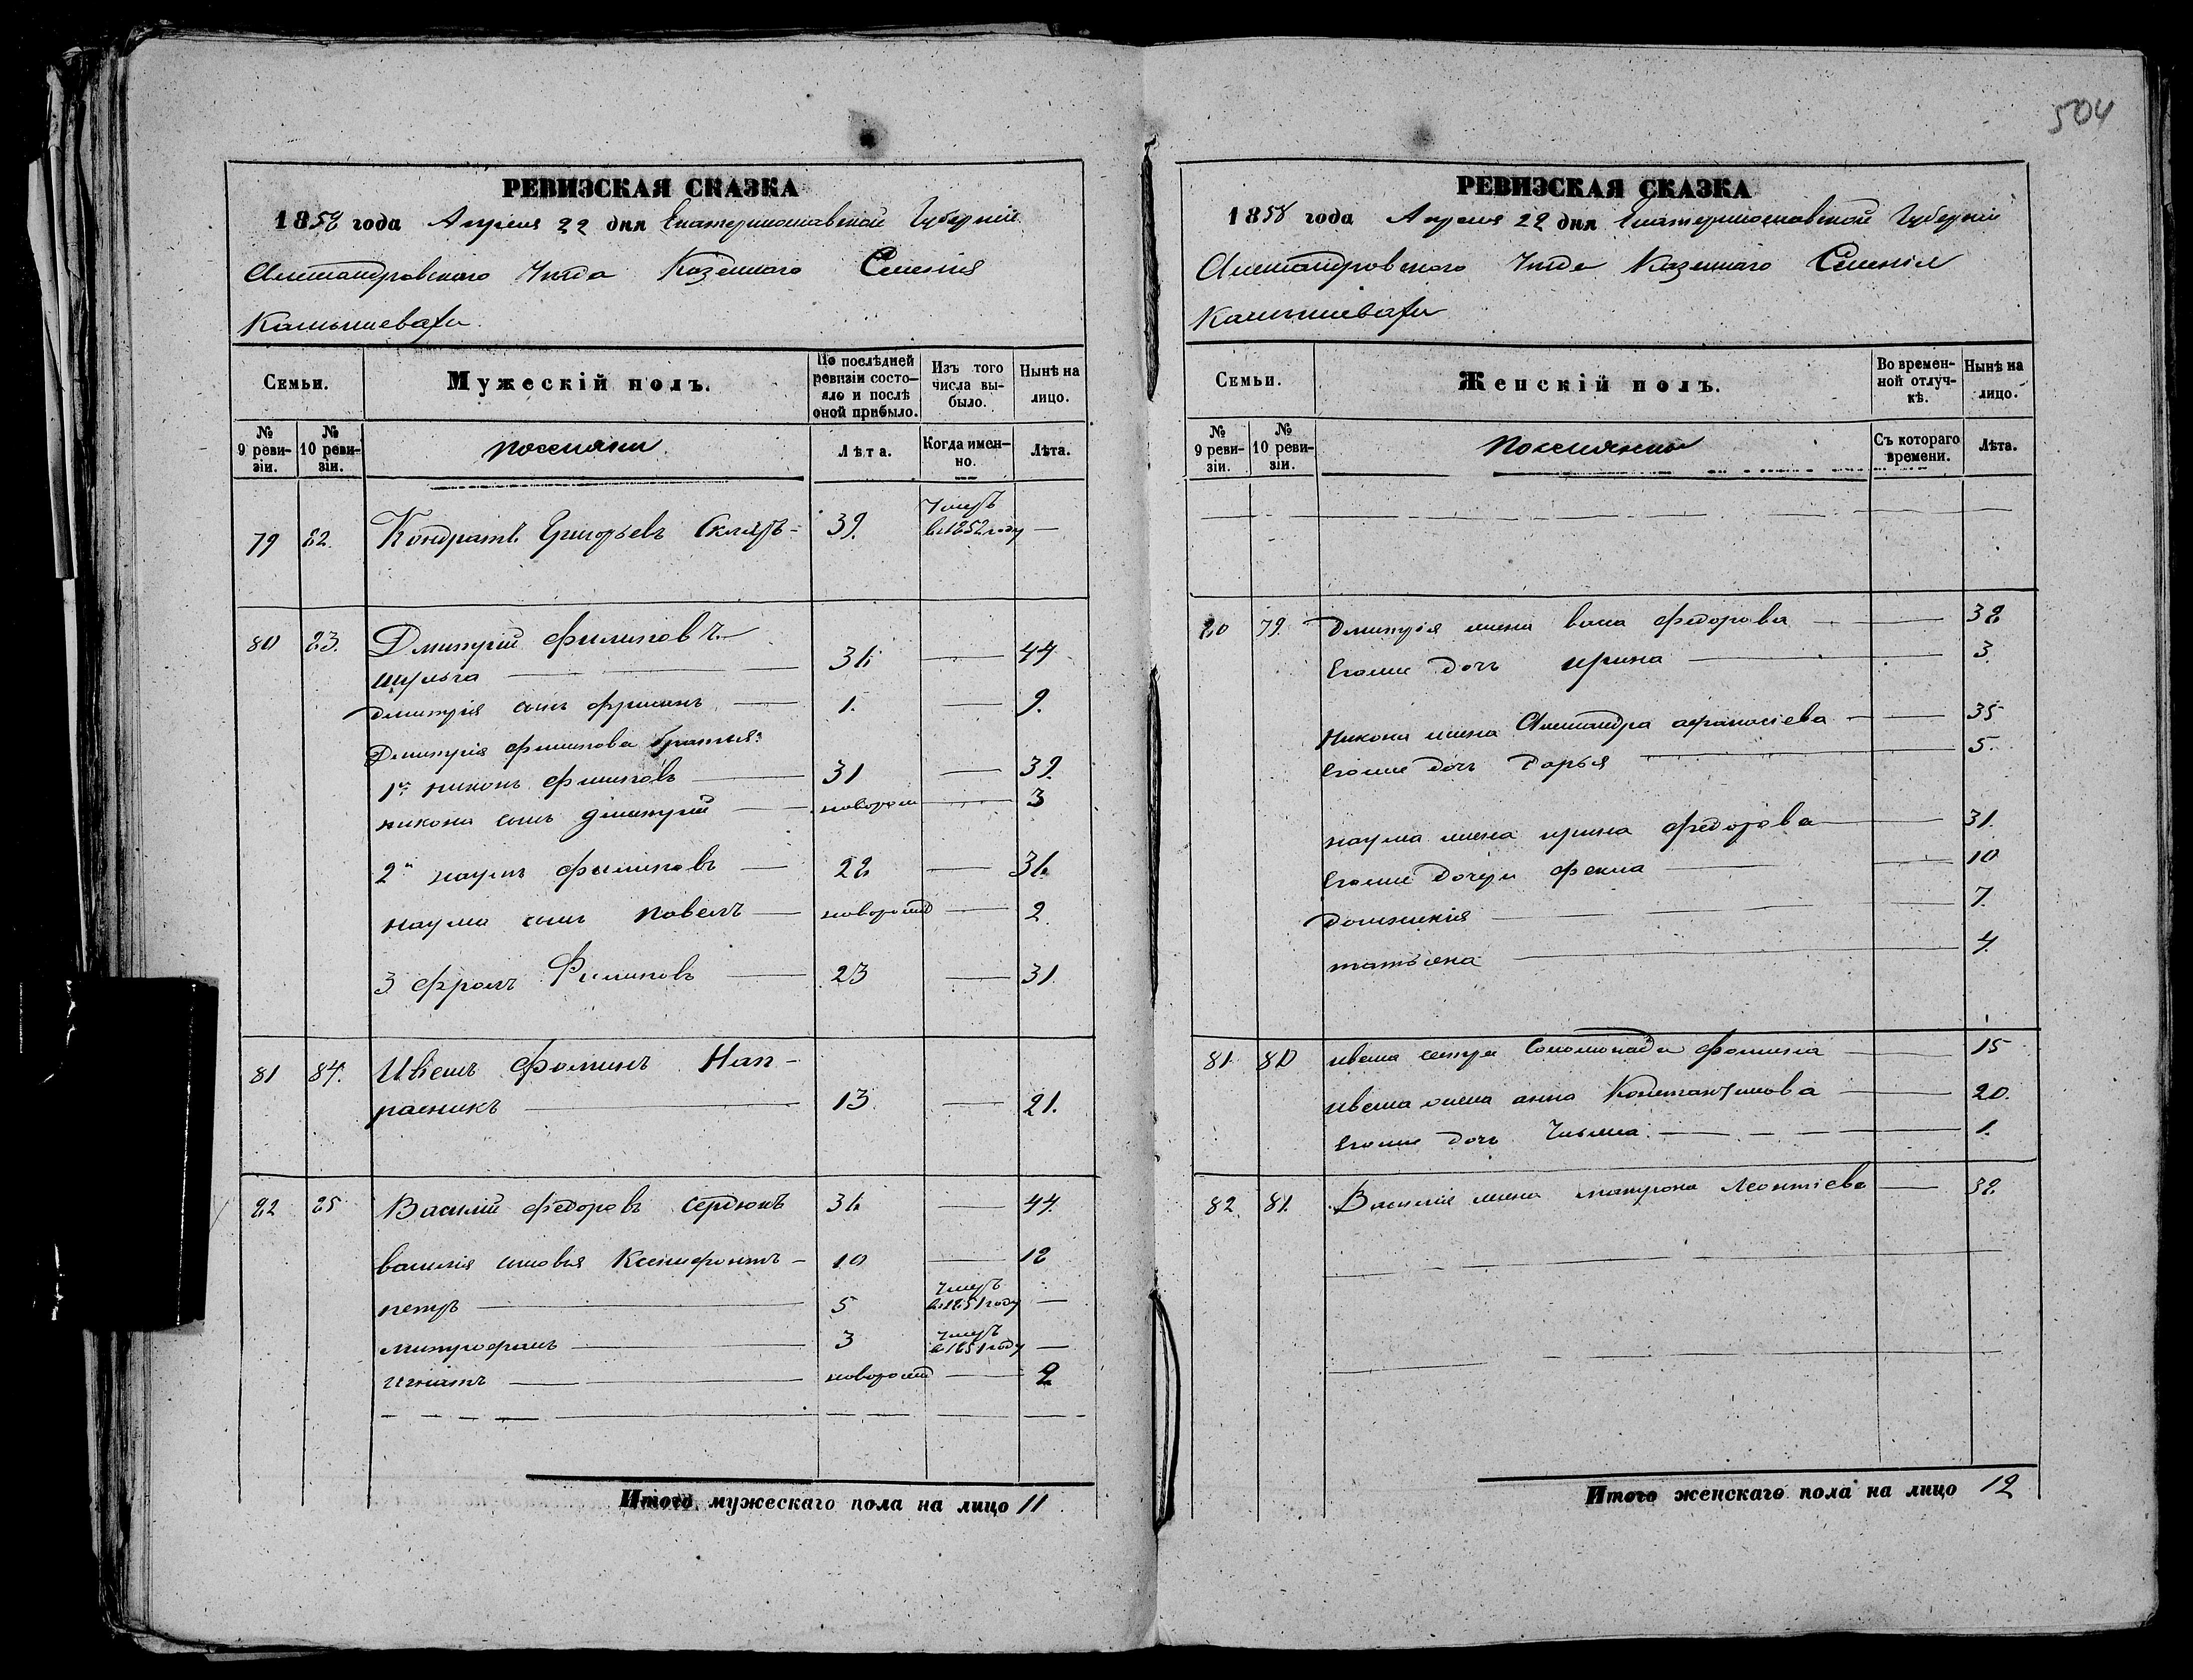 504
РЕВИЗСКАЯ СКАЗКА
1858 года Апреля 22 дня Екатеринославской Губернiи
Александровского Уезда Казенного Селенiя
Камышевахи
Семьи.
Мужескій полъ.
По послѣдней ревизіи состо-
яло и послѣ
оной прибыло.
Изъ того
числа вы-
было.
Нынѣ на
лицо.
№
9 реви-
зіи.
№
10 реви-
зіи.
поселяни
Лѣта.
Когда имен-
но.
Лѣта.
79 82. Кондратъ Григорьевъ Скляръ 39. Умеръ
в 1852 году —
80 83. Дмитрій Филиповъ
шульга — 36 — 44
Дмитрія сынъ — 1. — 9.
Дмитрія филипова братья:
1й никонъ филиповъ — 31 — 39.
никона сынъ дмитрій — новорожд — 3
2й наумъ филиповъ — 28 — 36.
наума сынъ павелъ — новорожд — 2
3 фролъ Филиповъ — 23 — 31
81 84. Ивсей Фоминъ Нап-
расникъ — 13 — 21.
82 85 Василий федоровъ сердюкъ 36 — 44.
василія сыновья Ксенофонтъ — 10 — 18
петръ — 5 Умеръ
в 1851 году —
митрофанъ — 3 Умеръ
в 1851 году —
игнатъ — новорожд — 2
Итого мужескаго пола на лицо 11
РЕВИЗСКАЯ СКАЗКА
1858 года Апреля 22 дня Екатеринославской Губернiи
Александровского Уезда Казенного Селенiя
Камышевахи
Семьи.
Женскій полъ.
Во времен-
ной отлуч-
кѣ.
Нынѣ на
лицо.
№
9 реви-
зіи.
№
10 реви-
зіи.
поселянки
Съ котораго
времени.
Лѣта.
80 79. Дмитрія жена васа федорова — 38
Егоже дочь ирина — 3.
Никона жена Александра афанасіева — 35
Егоже дочь Дарья — 5.
наума жена ирина федорова — 31.
Егоже дочери фекла — 10
домникія — 7.
татьяна — 4.
81. 80 ивсея сестра Соломонида фомина — 15
ивсея жена анна Константинова — 20.
Егоже дочь — 1.
82. 81. Василія жена матрона Леонтіева — 38
Итого женскаго пола на лицо 12